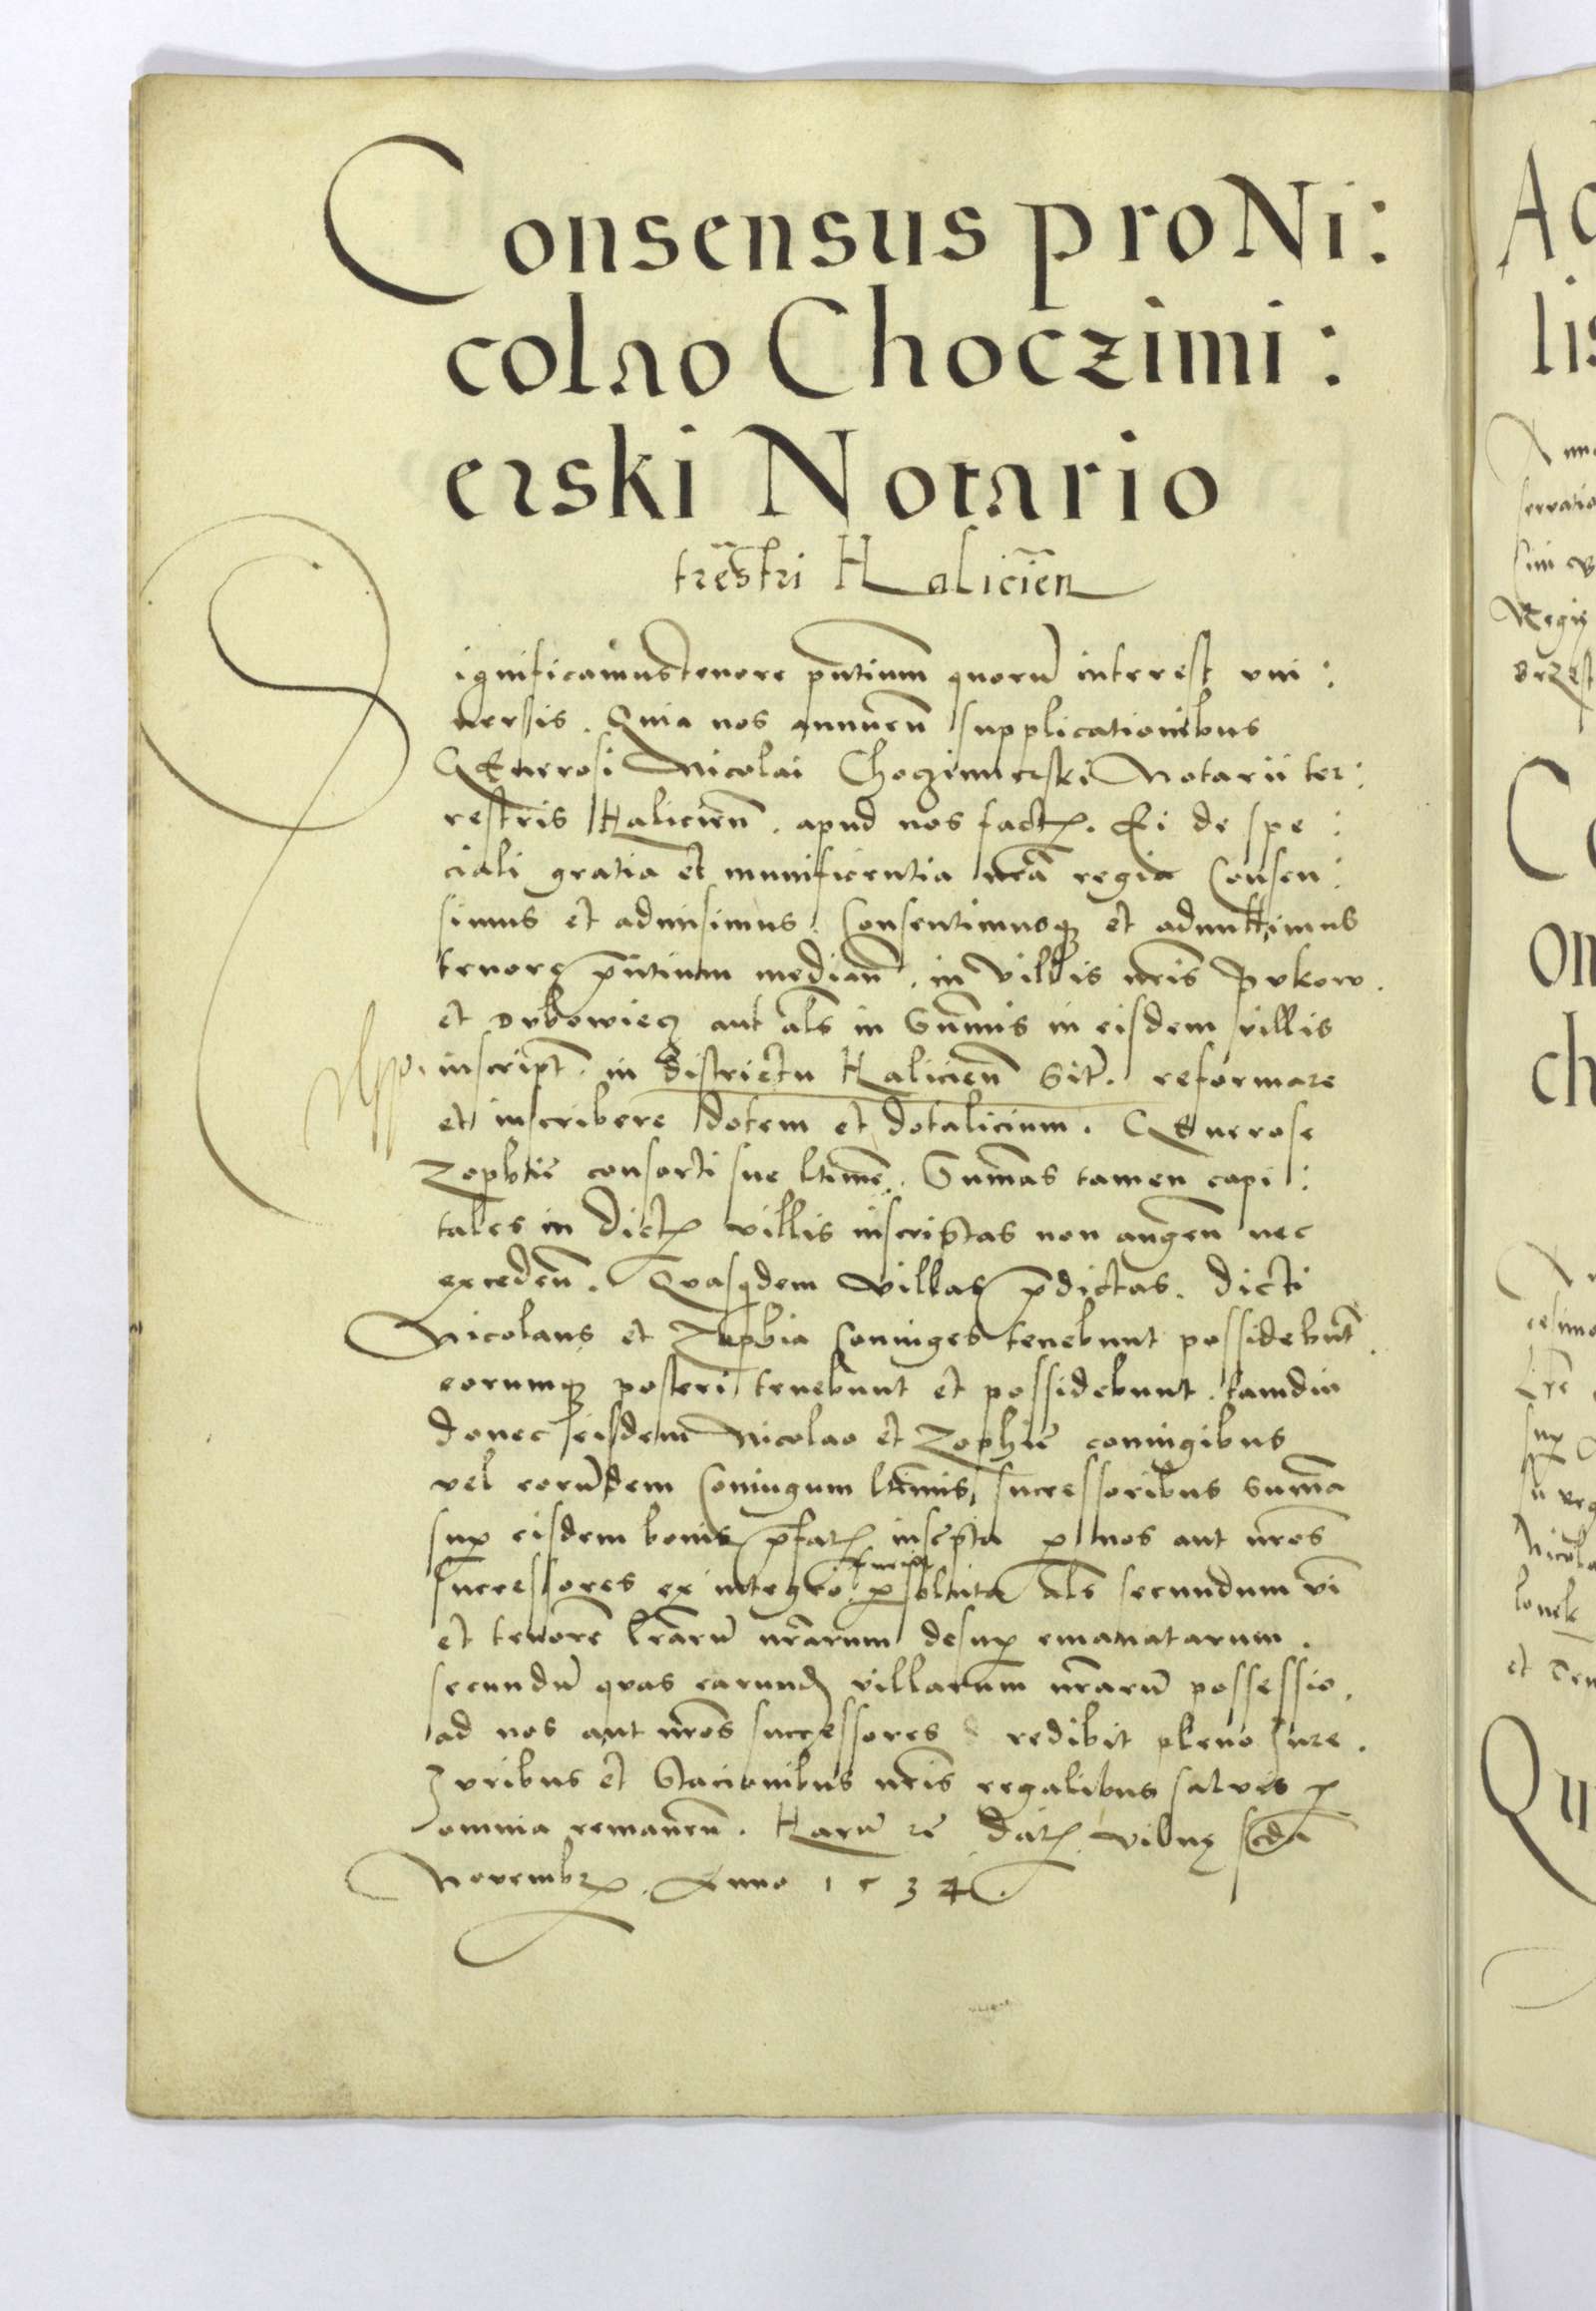 Consensus pro Ni:
colao Choczimi:
erski Notario
tr̄estri Halicien̄
Significamus tenore pn̄tium quorū interest vni:
uersis. Quia nos annuen̄ supplicationibus
Generosi Nicolai Choczimierski Notarii ter:
restris Halicien̄. apud nos factꝭ. Ei de spe:
ciali gratia et munificentia nr̄a regia Consen:
simus et admisimus. Consentimusqꝫ et admittimus
tenore pn̄tium median̄. in villis nr̄is Bukow.
et Dubowiecz aut als̄ in Sum̄is in eisdem villis
inscript̄. in districtu Halicien̄ Sit̄. reformare
et inscribere dotem et dotalicium. Generose
Zophie consorti sue ltīme. Sum̄as tamen capi:
tales in dictꝭ villis inscriptas non augen̄ nec
exceden̄. Quasqdem villas p̄dictas. dicti
Nicolaus et Zophia Coniuges tenebunt possidebūt.
eorumqꝫ posteri tenebunt et possidebunt. tamdiu
donec eisdem Nicolao et Zophie coniugibus
vel eorūdem Coniugum ltīmis successoribus sum̄a
sup̱ eisdem bonis p̄fatꝭ inscp̄ta ꝑ nos aut nr̄os
Successores ex integro ꝑsoluta als̄ secundum vī
et tenorē lr̄arū nr̄arum desup̱ emanatarum.
secundū quas earund̄ villarum nr̄arū possessio.
ad nos aut nr̄os successores redibit pleno Iure.
Iuribus et Stacionibus nr̄is regalibus saluis ꝑ
omnia remanen̄. Harū rē datꝭ Vilnę scd̄a
Novembrꝭ. Anno 1534.